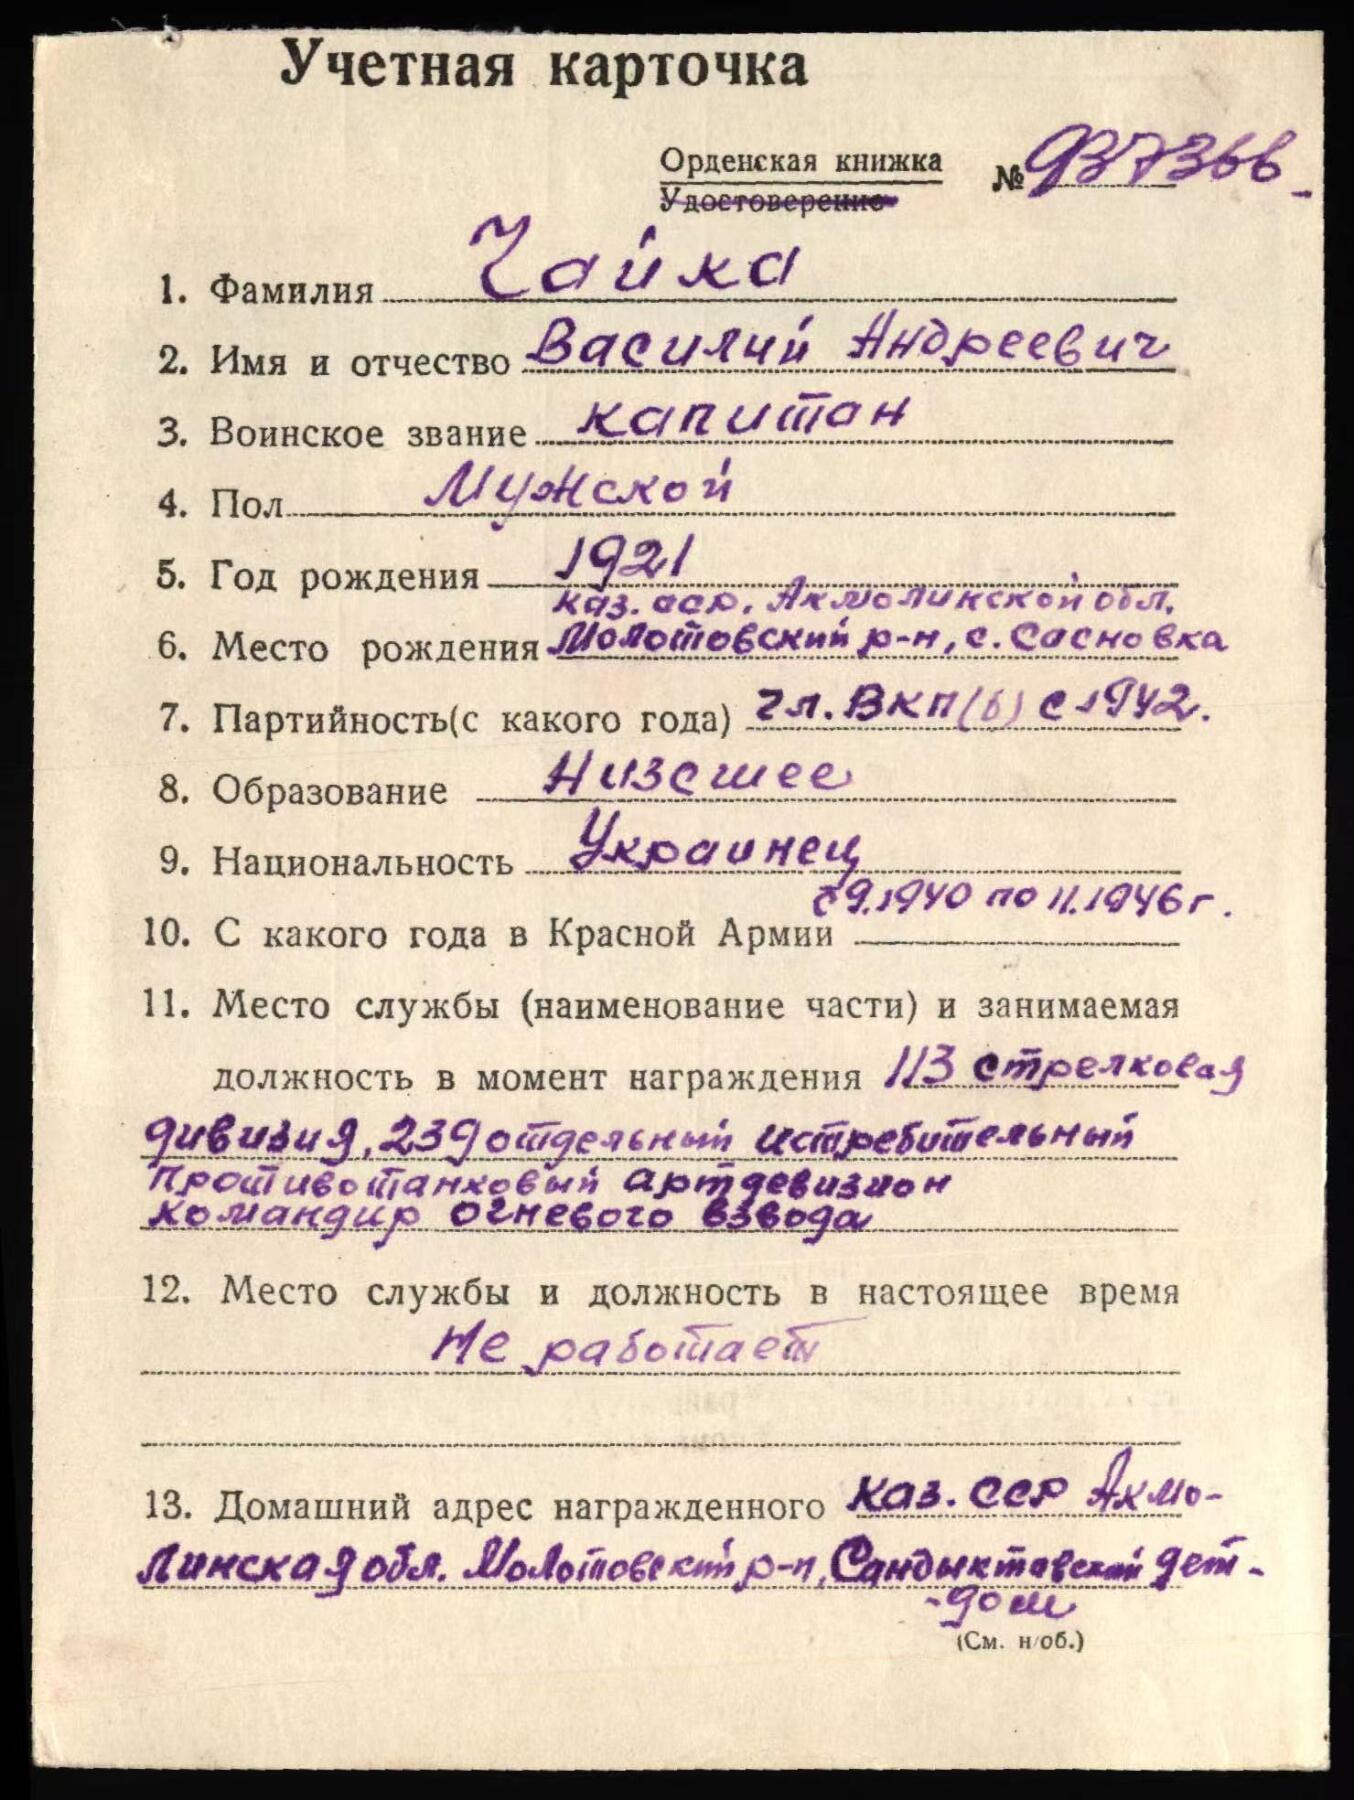 Учетная карточка
Орденская книжка № 937366
Удостоверение
1. Фамилия Чайка
2. Имя и отчество Василий Андреевич
3. Воинское звание капитан
4. Пол Мужской
5. Год рождения 1921
каз. сср. Акмолинской обл.
6. Место рождения Молотовский р-н, с. Сасновка
7. Партийность(с какого года) чл. ВКП(б) с 1942.
8. Образование Низсшее
9. Национальность Украинец
с 9.1940 по 11.1946 г.
10. С какого года в Красной Армии
11. Место службы (наименование части) и занимаемая
должность в момент награждения 113 стрелковая
дивизия, 239 отдельный истребительный
Противотанковый артдевизион
командир огневого взвода
12. Место службы и должность в настоящее время
Не работает
13. Домашний адрес награжденного Каз. ССР Акмо-
линская обл. Молотовский р-н, Сандыктавский дет-
-дом
(См. н/об.)